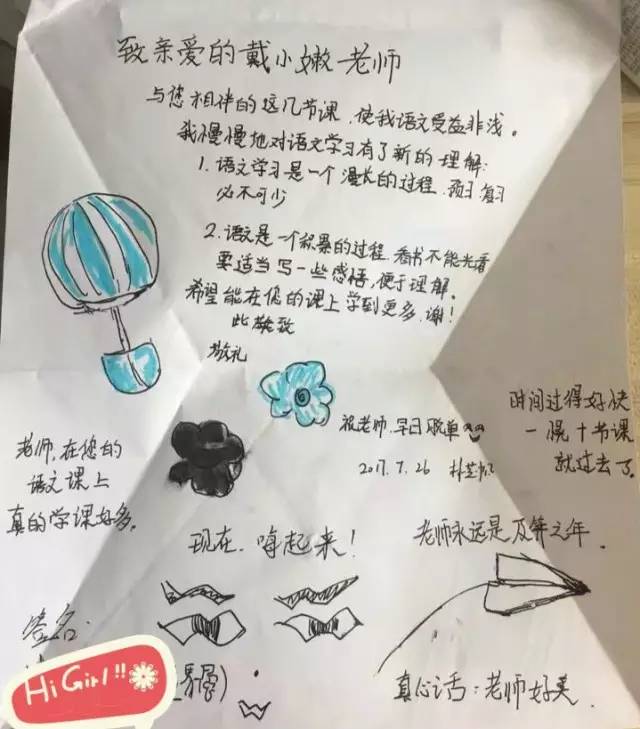 致亲爱的戴小嫩老师
与您相伴的这几节课,使我语文受益非浅。
我慢慢地对语文学习有了新的理解:
1. 语文学习是一个漫长的过程,预习复习
必不可少
2. 语文是一个积累的过程,看书不能光看
要适当写一些感悟,便于理解。
希望能在您的课上学到更多,谢!
此致
敬礼
祝老师,早日脱单
2017.7.26
时间过得好快
一晃十节课
就过去了。
老师,在您的
语文课上
真的学课好多。
现在,嗨起来!
老师永远是及笄之年.
签名:
Hi Girl!!
真心话:老师好美